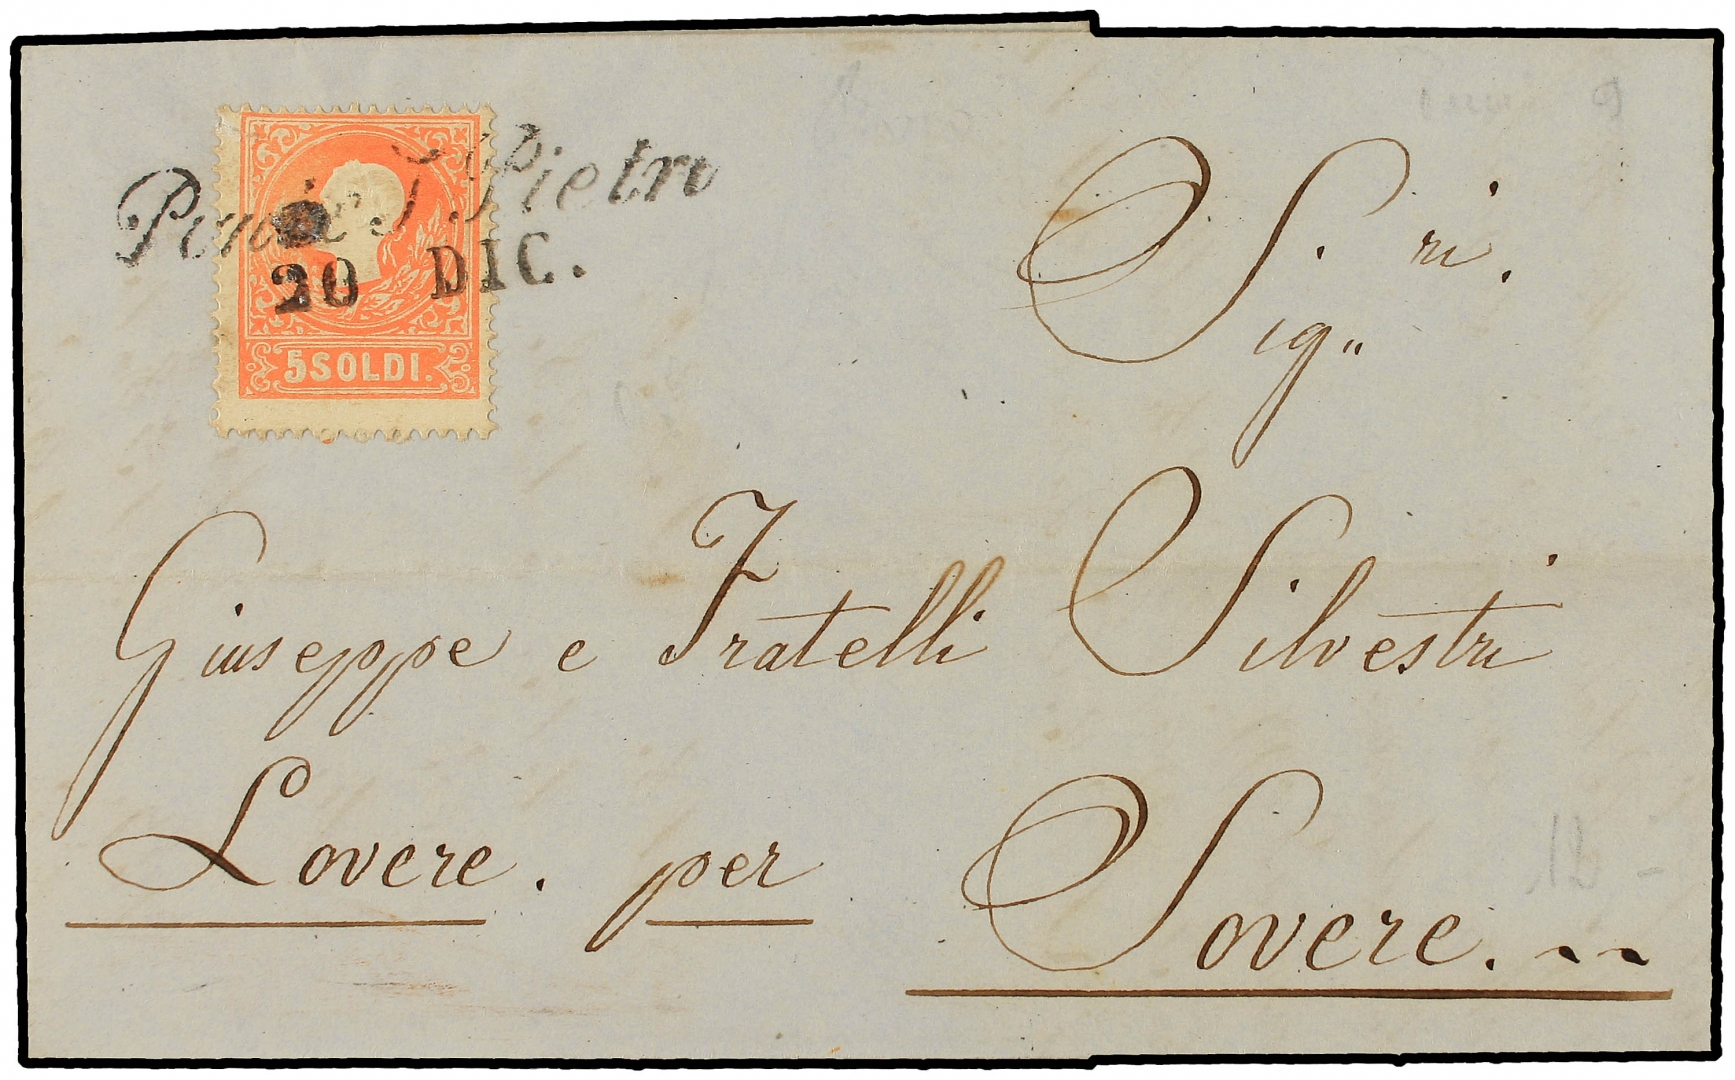 Ponte S. Pietro
20 DIC.
5 SOLDI.
Sig.ri
Giuseppe e Fratelli Silvestri
Lovere. per Sovere.